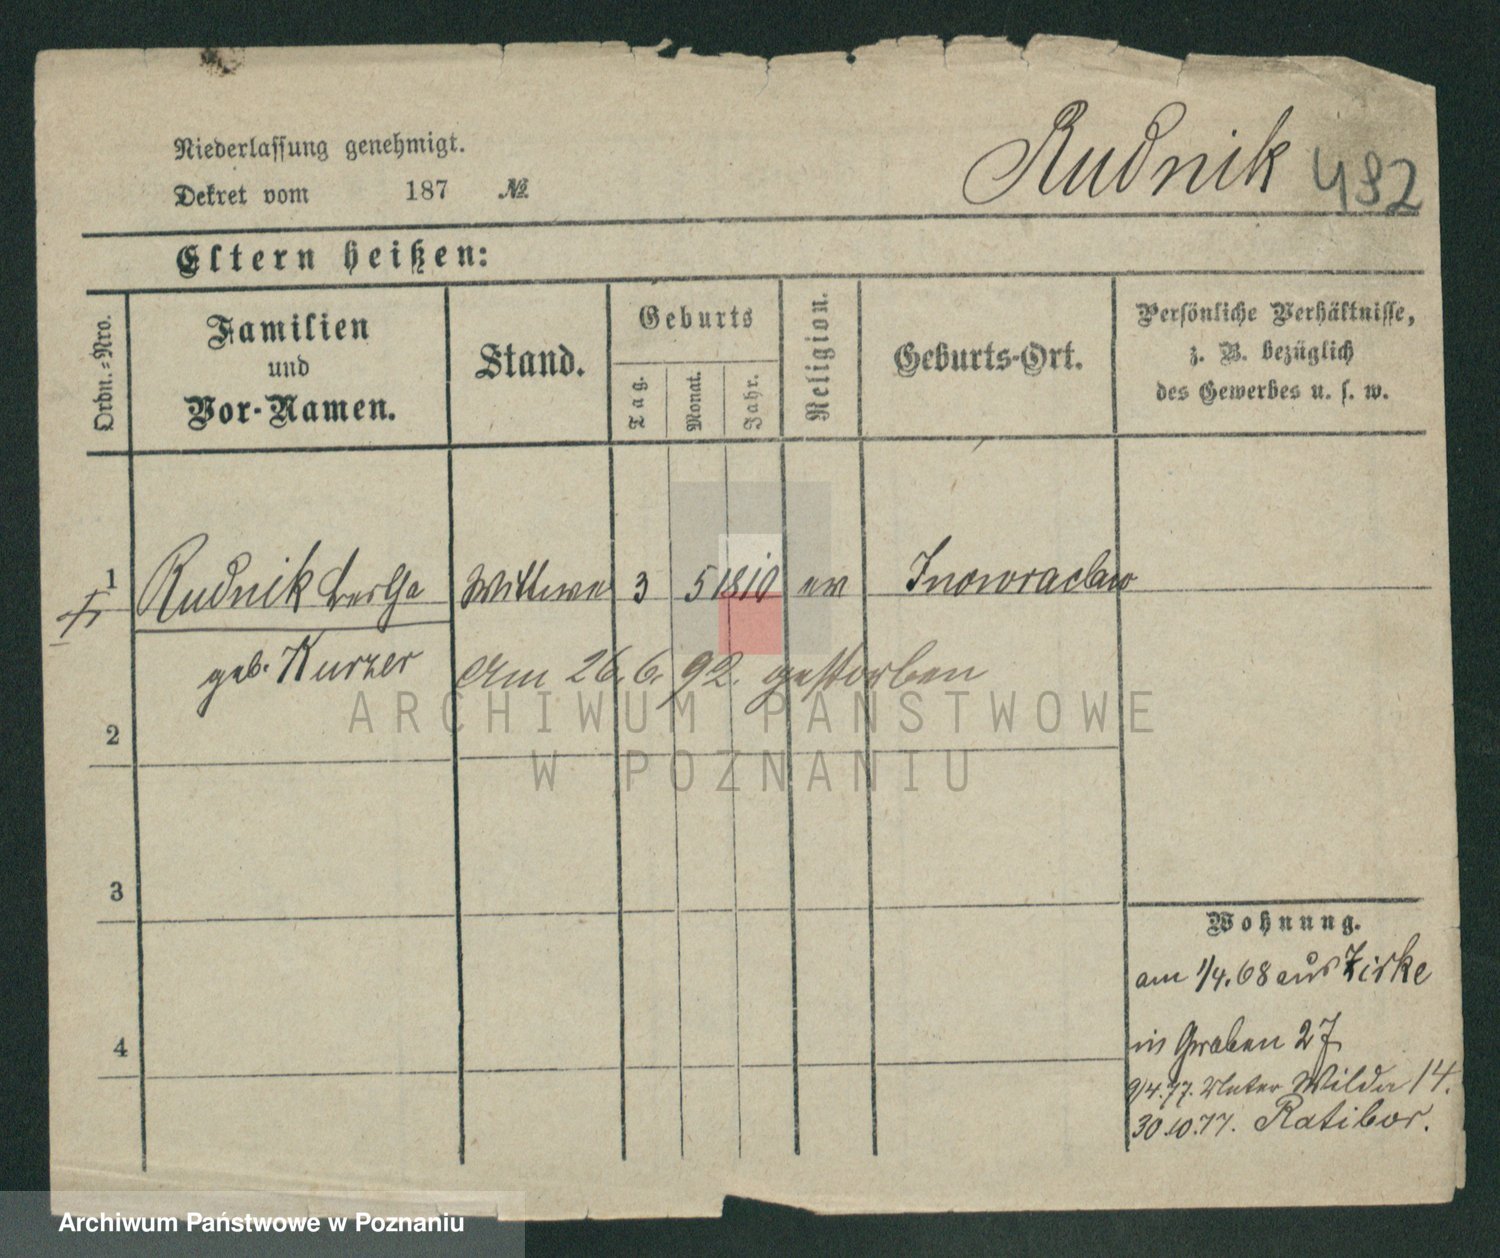 Rudnik 492
Niederlassung genehmigt.
Dekret vom 187 №
Eltern heißen:
Ordn.-Nro.
Familien
und
Vor-Namen.
Stand.
Geburts
Tag.
Monat.
Jahr.
Religion.
Geburts-Ort.
Persönliche Verhältnisse,
z. B. bezüglich
des Gewerbes u. s. w.
1 Rudnik Bertha Wittwe 3 5 1810 ev Inowraclaw
geb. Kurzer
Am 26.6.92. gestorben
2
3
4
Wohnung.
am 1/4.68 aus Zirke
in Graben 27
9/4.77. Unter Wilda 14.
30.10.77. Ratibor.
ARCHIWUM PAŃSTWOWE
W POZNANIU
Archiwum Państwowe w Poznaniu